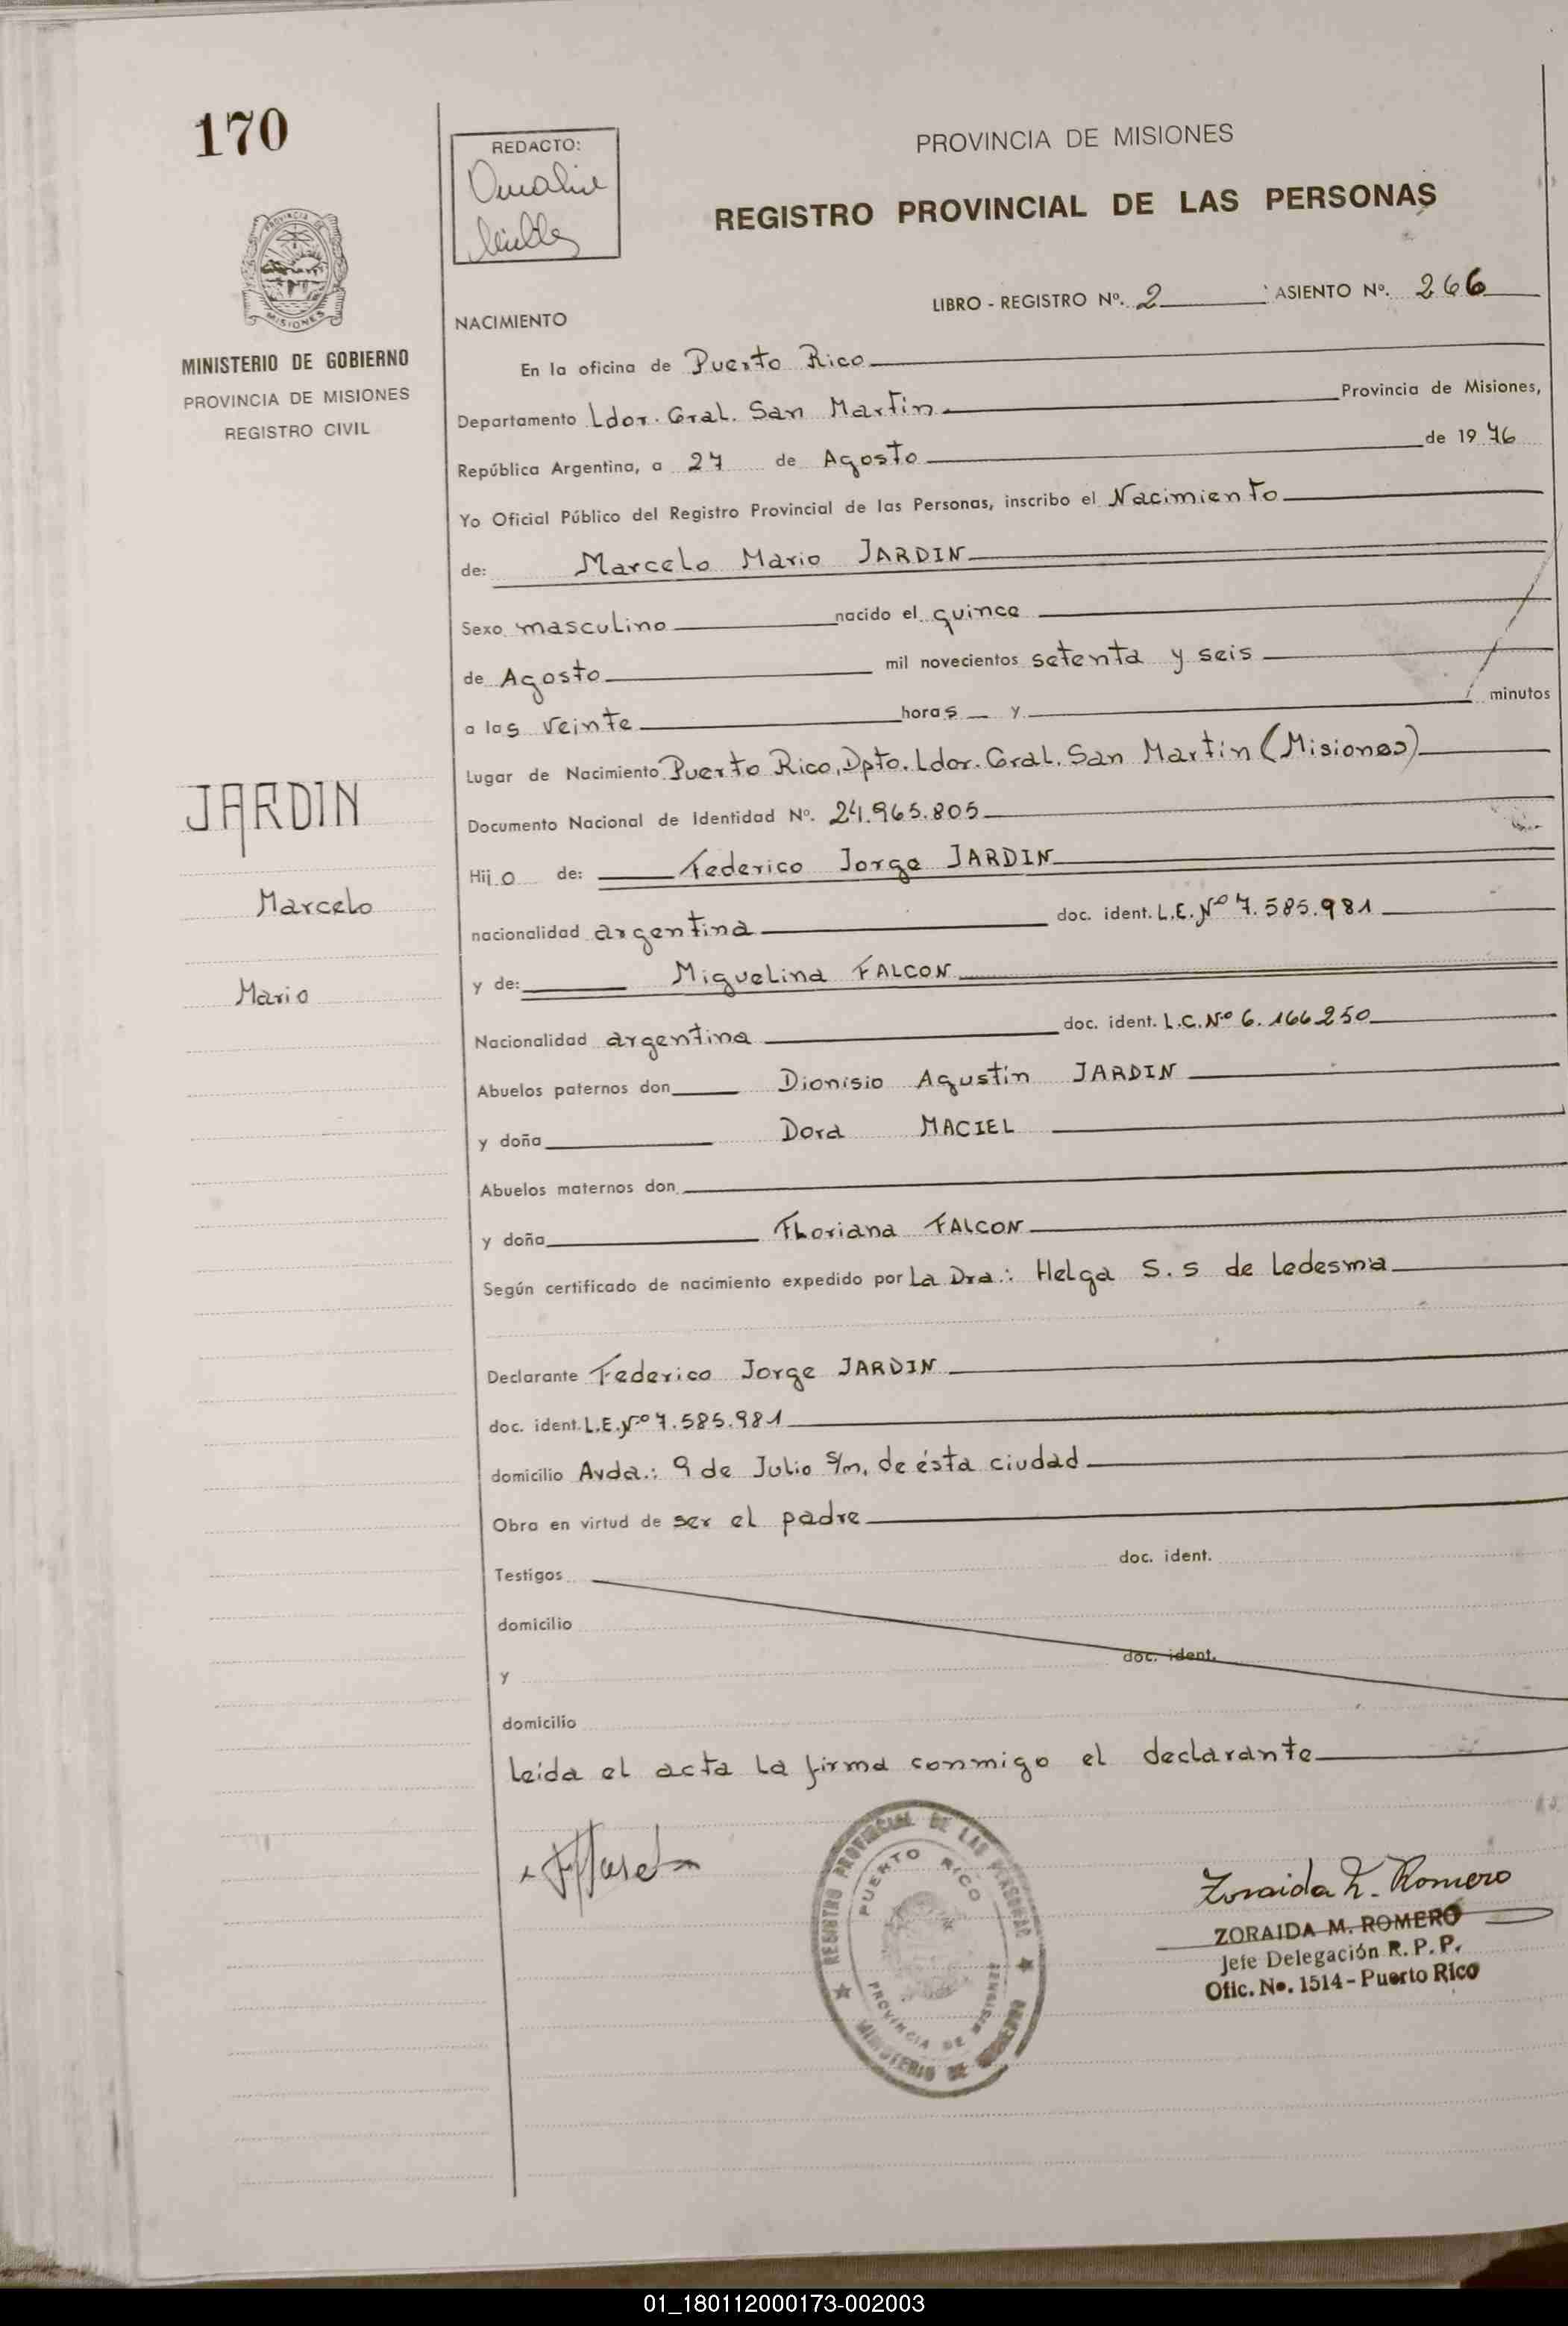 170
REDACTO:
PROVINCIA DE MISIONES
REGISTRO PROVINCIAL DE LAS PERSONAS
PROVINCIA DE
MISIONES
MINISTERIO DE GOBIERNO
PROVINCIA DE MISIONES
REGISTRO CIVIL
LIBRO - REGISTRO Nº. 2 ASIENTO Nº. 266
NACIMIENTO
En la oficina de Puerto Rico
Departamento Ldor. Gral. San Martin Provincia de Misiones,
República Argentina, a 27 de Agosto de 1976
Yo Oficial Público del Registro Provincial de las Personas, inscribo el Nacimiento
de: Marcelo Mario JARDIN
Sexo masculino nacido el quince
de Agosto mil novecientos setenta y seis
a las veinte horas y minutos
Lugar de Nacimiento Puerto Rico, Dpto. Ldor. Gral. San Martin (Misiones)
JARDIN
Marcelo
Mario
Documento Nacional de Identidad Nº. 24.965.805
Hijo de: Federico Jorge JARDIN
nacionalidad argentina doc. ident. L.E. Nº 7.585.981
y de: Miguelina FALCON
Nacionalidad argentina doc. ident. L.C. Nº 6.166.250
Abuelos paternos don Dionisio Agustin JARDIN
y doña Dora MACIEL
Abuelos maternos don
y doña Floriana FALCON
Según certificado de nacimiento expedido por La Dra.: Helga S. S de Ledesma
Declarante Federico Jorge JARDIN
doc. ident. L.E. Nº 7.585.981
domicilio Avda.: 9 de Julio s/n, de ésta ciudad
Obra en virtud de ser el padre
Testigos doc. ident.
domicilio
y doc. ident.
domicilio
Leída el acta la firma conmigo el declarante
REGISTRO PROVINCIAL DE LAS PERSONAS
PUERTO RICO
PROVINCIA DE MISIONES
MINISTERIO DE GOBIERNO
Zoraida M. Romero
ZORAIDA M. ROMERO
Jefe Delegación R. P. P.
Ofic. No. 1514 - Puerto Rico
01_180112000173-002003